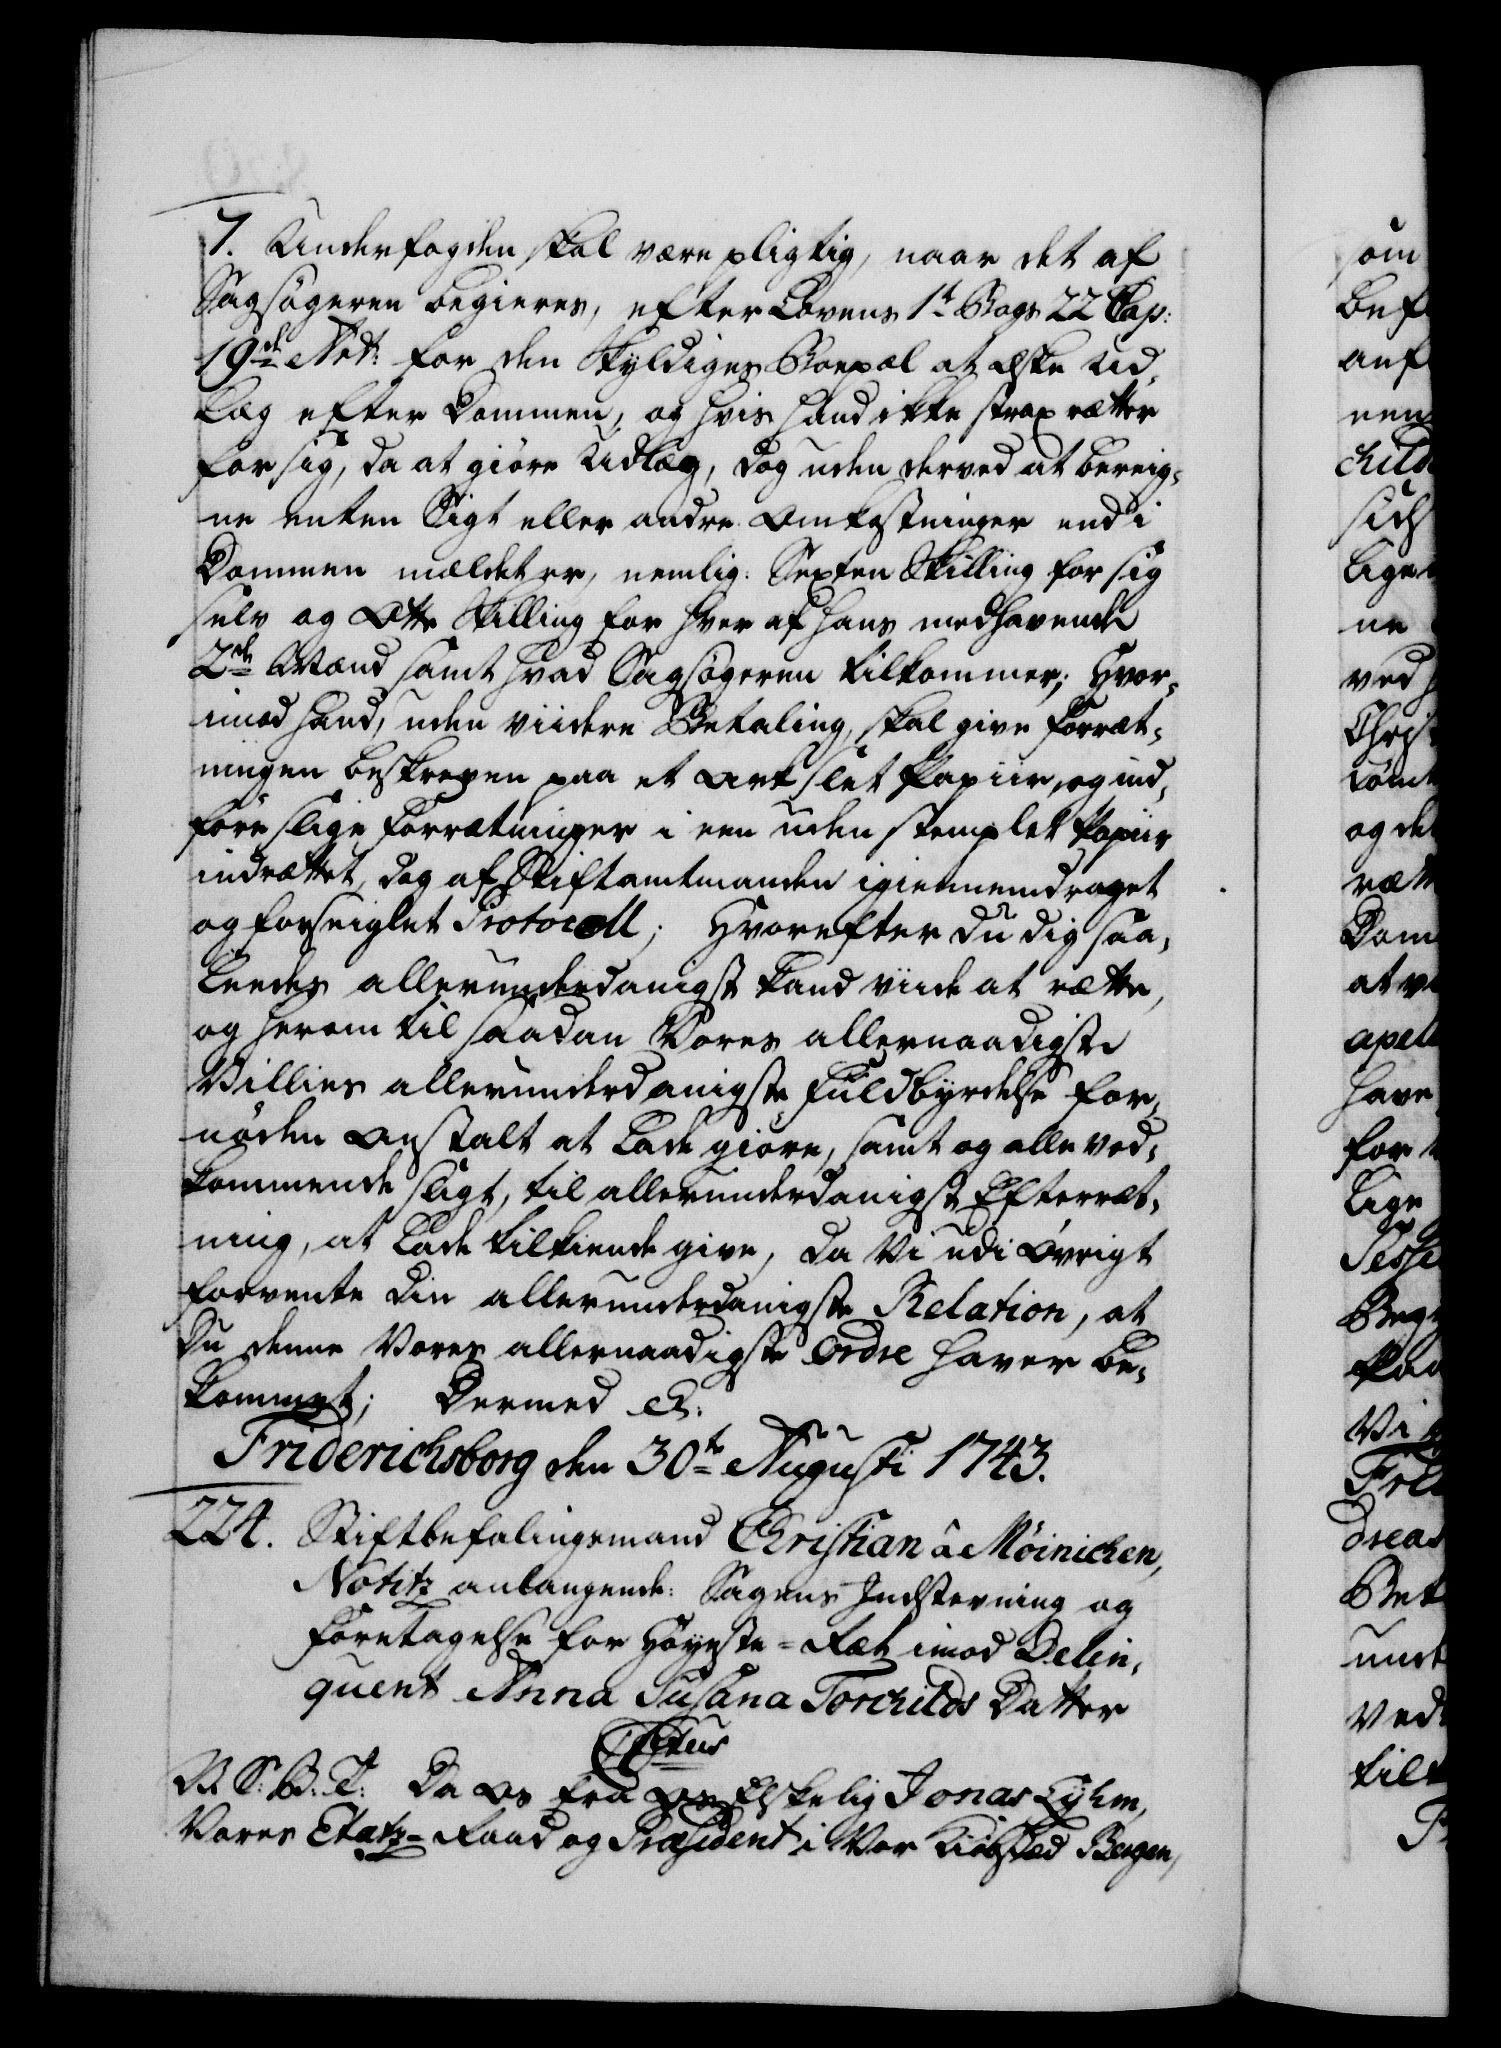 7. Underfogden skal være pligtig, naar det af
Sagsøgeren begieres, efter Lovens 1t Bogs 22 Cap:
19de Art: for den Skyldiges Boepæl at æske Ud-
læg efter Dommen, og hvis hand ikke strax retter
for sig, da at giøre Udlæg, dog uden derved at bereig-
ne enten Sigt eller andre Omkostninger end i
Dommen meldet er, nemlig: Sexten Skilling for sig
selv og Otte Skilling for hver af hans medhavende
2de Mænd samt hvad Sagsøgeren tilkommer; Hvor-
imod hand, uden viidere Betaling, skal give Forret-
ningen beskreven paa et Ark slet Papiir, og ind-
føre slige Forretninger i een uden stemplet Papiir
indrettet, dog af Stiftamtmanden igiennemdraget
og forseiglet Protocoll; Hvorefter Du dig saa-
leedes allerunderdanigst kand viide at rette,
og herom til saadan Vores allernaadigste
Villies allerunderdanigste Fuldbyrdelse for-
nøden Anstalt at lade giøre, samt og alle ved-
kommende sligt, til allerunderdanigst Efterret-
ning, at lade tilkiende give, da Vi udi Øvrigt
forvente Din allerunderdanigste Relation, at
Du denne Vores allernaadigste Ordre haver be-
kommet; Dermed &:
Friderichsborg den 30te Augusti 1743.
224. Stiftbefalingsmand Christian â Møinichen,
Notitz anlangende: Sagens Indstevning og
Foretagelse for Høyeste-Ræt imod Delin-
quent Anna Susana Torchilds Datter
Titus
V. S: G: T: Da Os fra Os Elskelig Jonas Lyhm,
Vores Etatz-Raad og Præsident i Vor Kiøbsted Bergen,